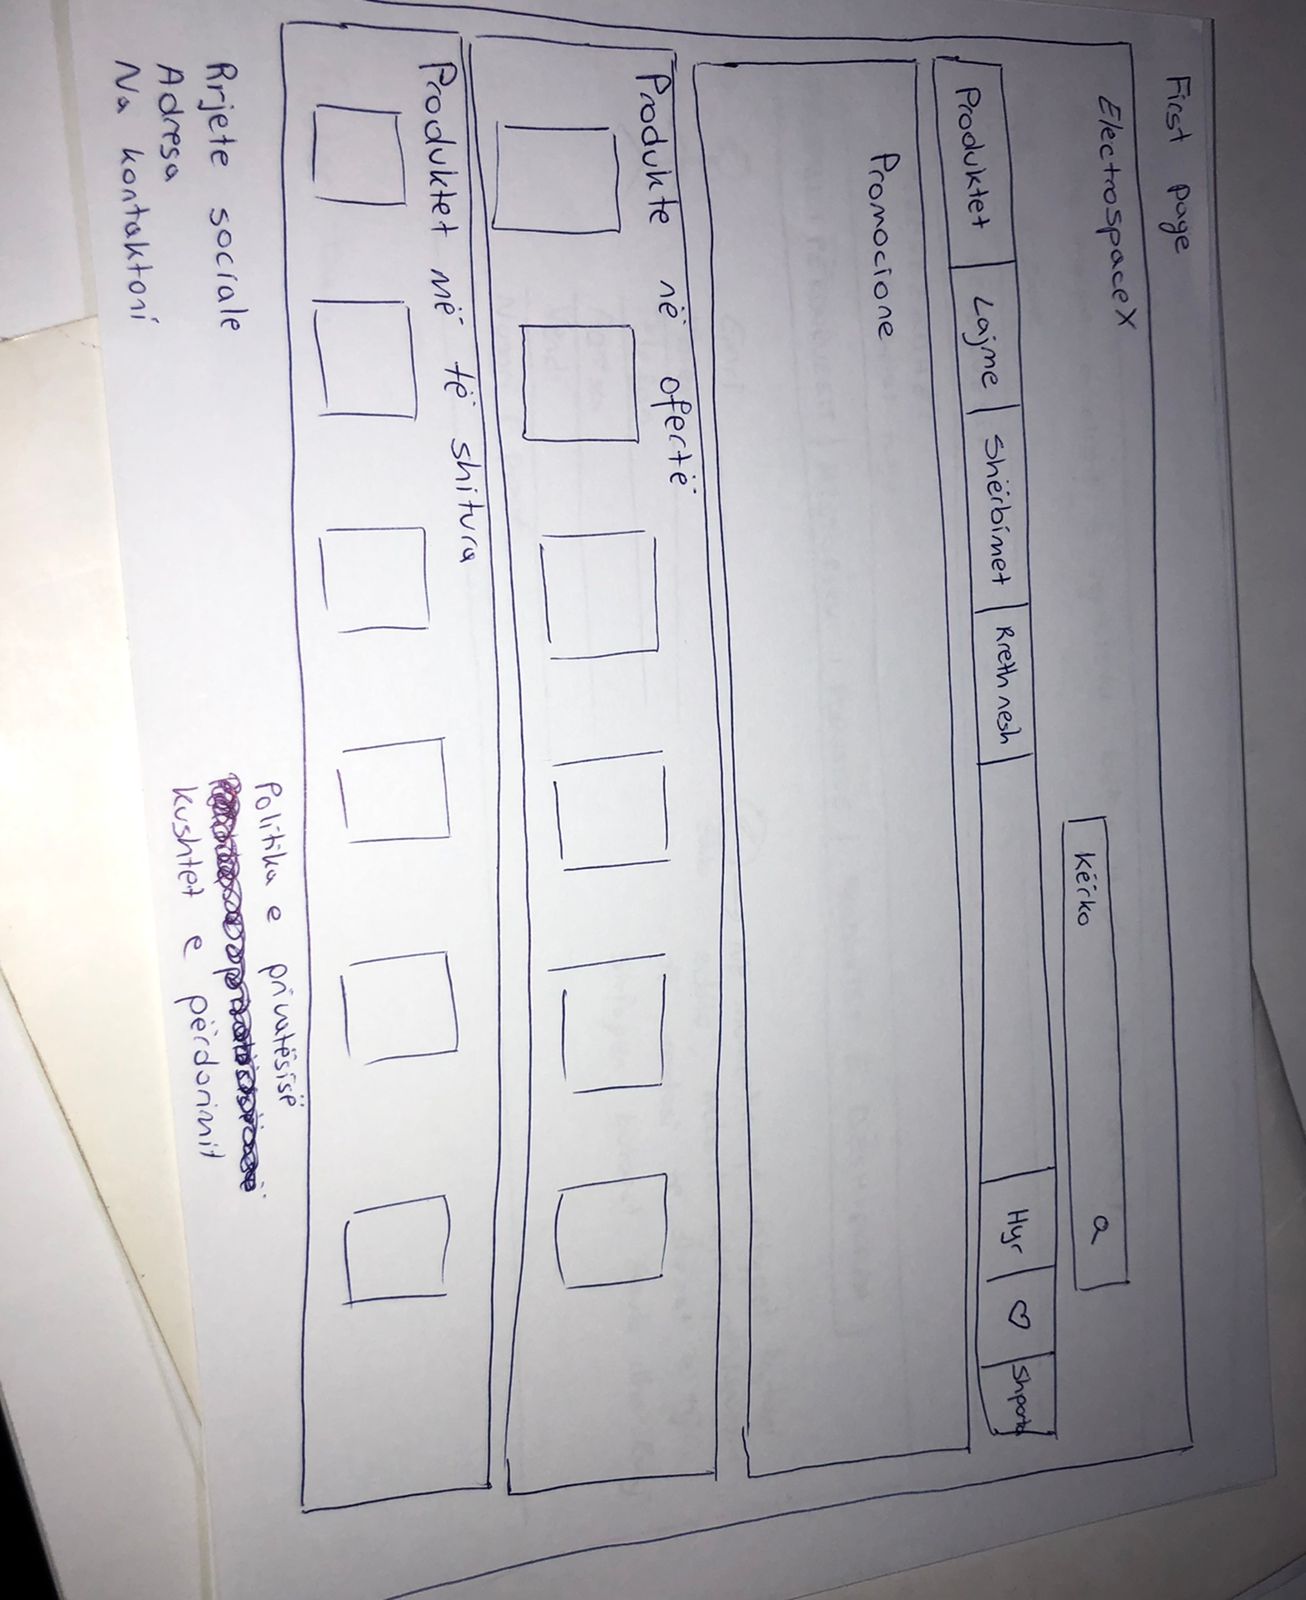 First page
ElectrospaceX
Kërko
Produktet Lajme Shërbimet Rreth nesh Hyr ♡ Shporta
Promocione
Produkte në ofertë
Produktet më të shitura
Rrjete sociale
Adresa
Na kontaktoni
Politika e privatësisë
kushtet e përdorimit